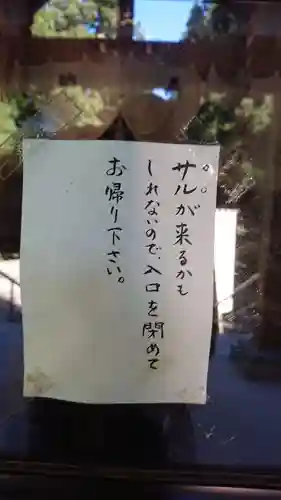 サルが来るかも
しれないので、入口を閉めて
お帰り下さい。